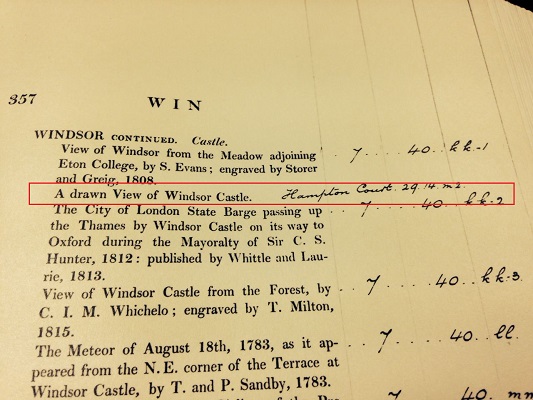 357 WIN
WINDSOR CONTINUED. Castle.
View of Windsor from the Meadow adjoining
Eton College, by S. Evans; engraved by Storer
and Greig, 1808. 7 . . . . 40 . . kk-1
A drawn View of Windsor Castle. Hampton Court. 29.14.m2.
The City of London State Barge passing up . . 7 . . . . 40 . . kk-2
the Thames by Windsor Castle on its way to
Oxford during the Mayoralty of Sir C. S.
Hunter, 1812: published by Whittle and Lau-
rie, 1813.
View of Windsor Castle from the Forest, by . . 7 . . . . 40 . . kk-3.
C. I. M. Whichelo; engraved by T. Milton,
1815.
The Meteor of August 18th, 1783, as it ap- 7 40 . . ll.
peared from the N.E. corner of the Terrace at
Windsor Castle, by T. and P. Sandby, 1783.
7 . . . . 40 . . mm